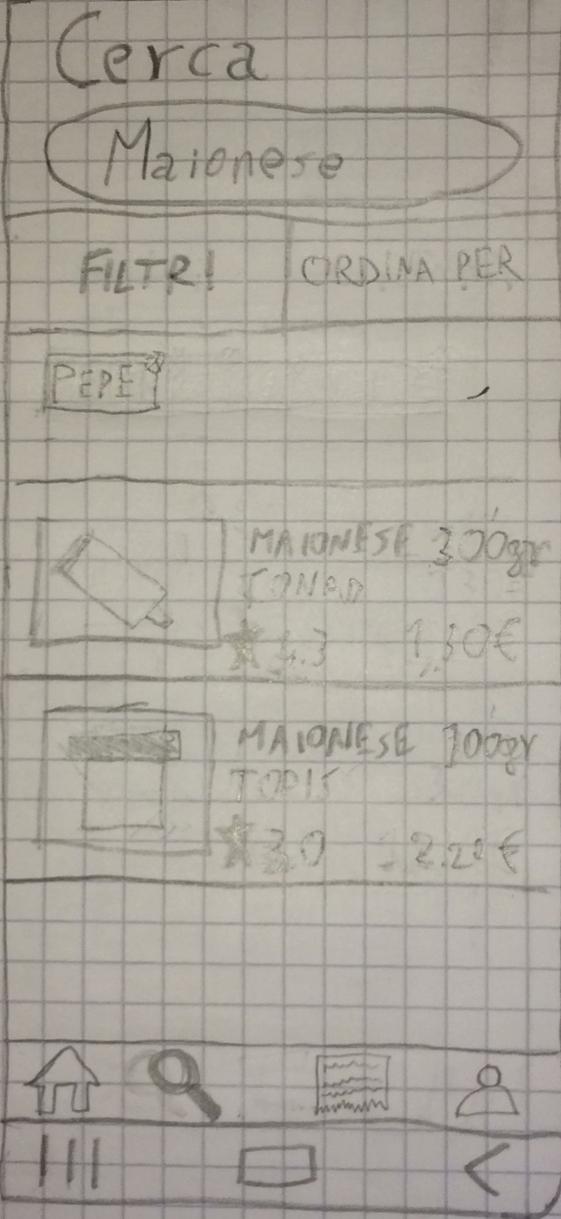 Cerca
Maionese
FILTRI
ORDINA PER
PEPE x
MAIONESE 300gr
4.3 1,30€
MAIONESE
TOPIS
3.0 2.20€